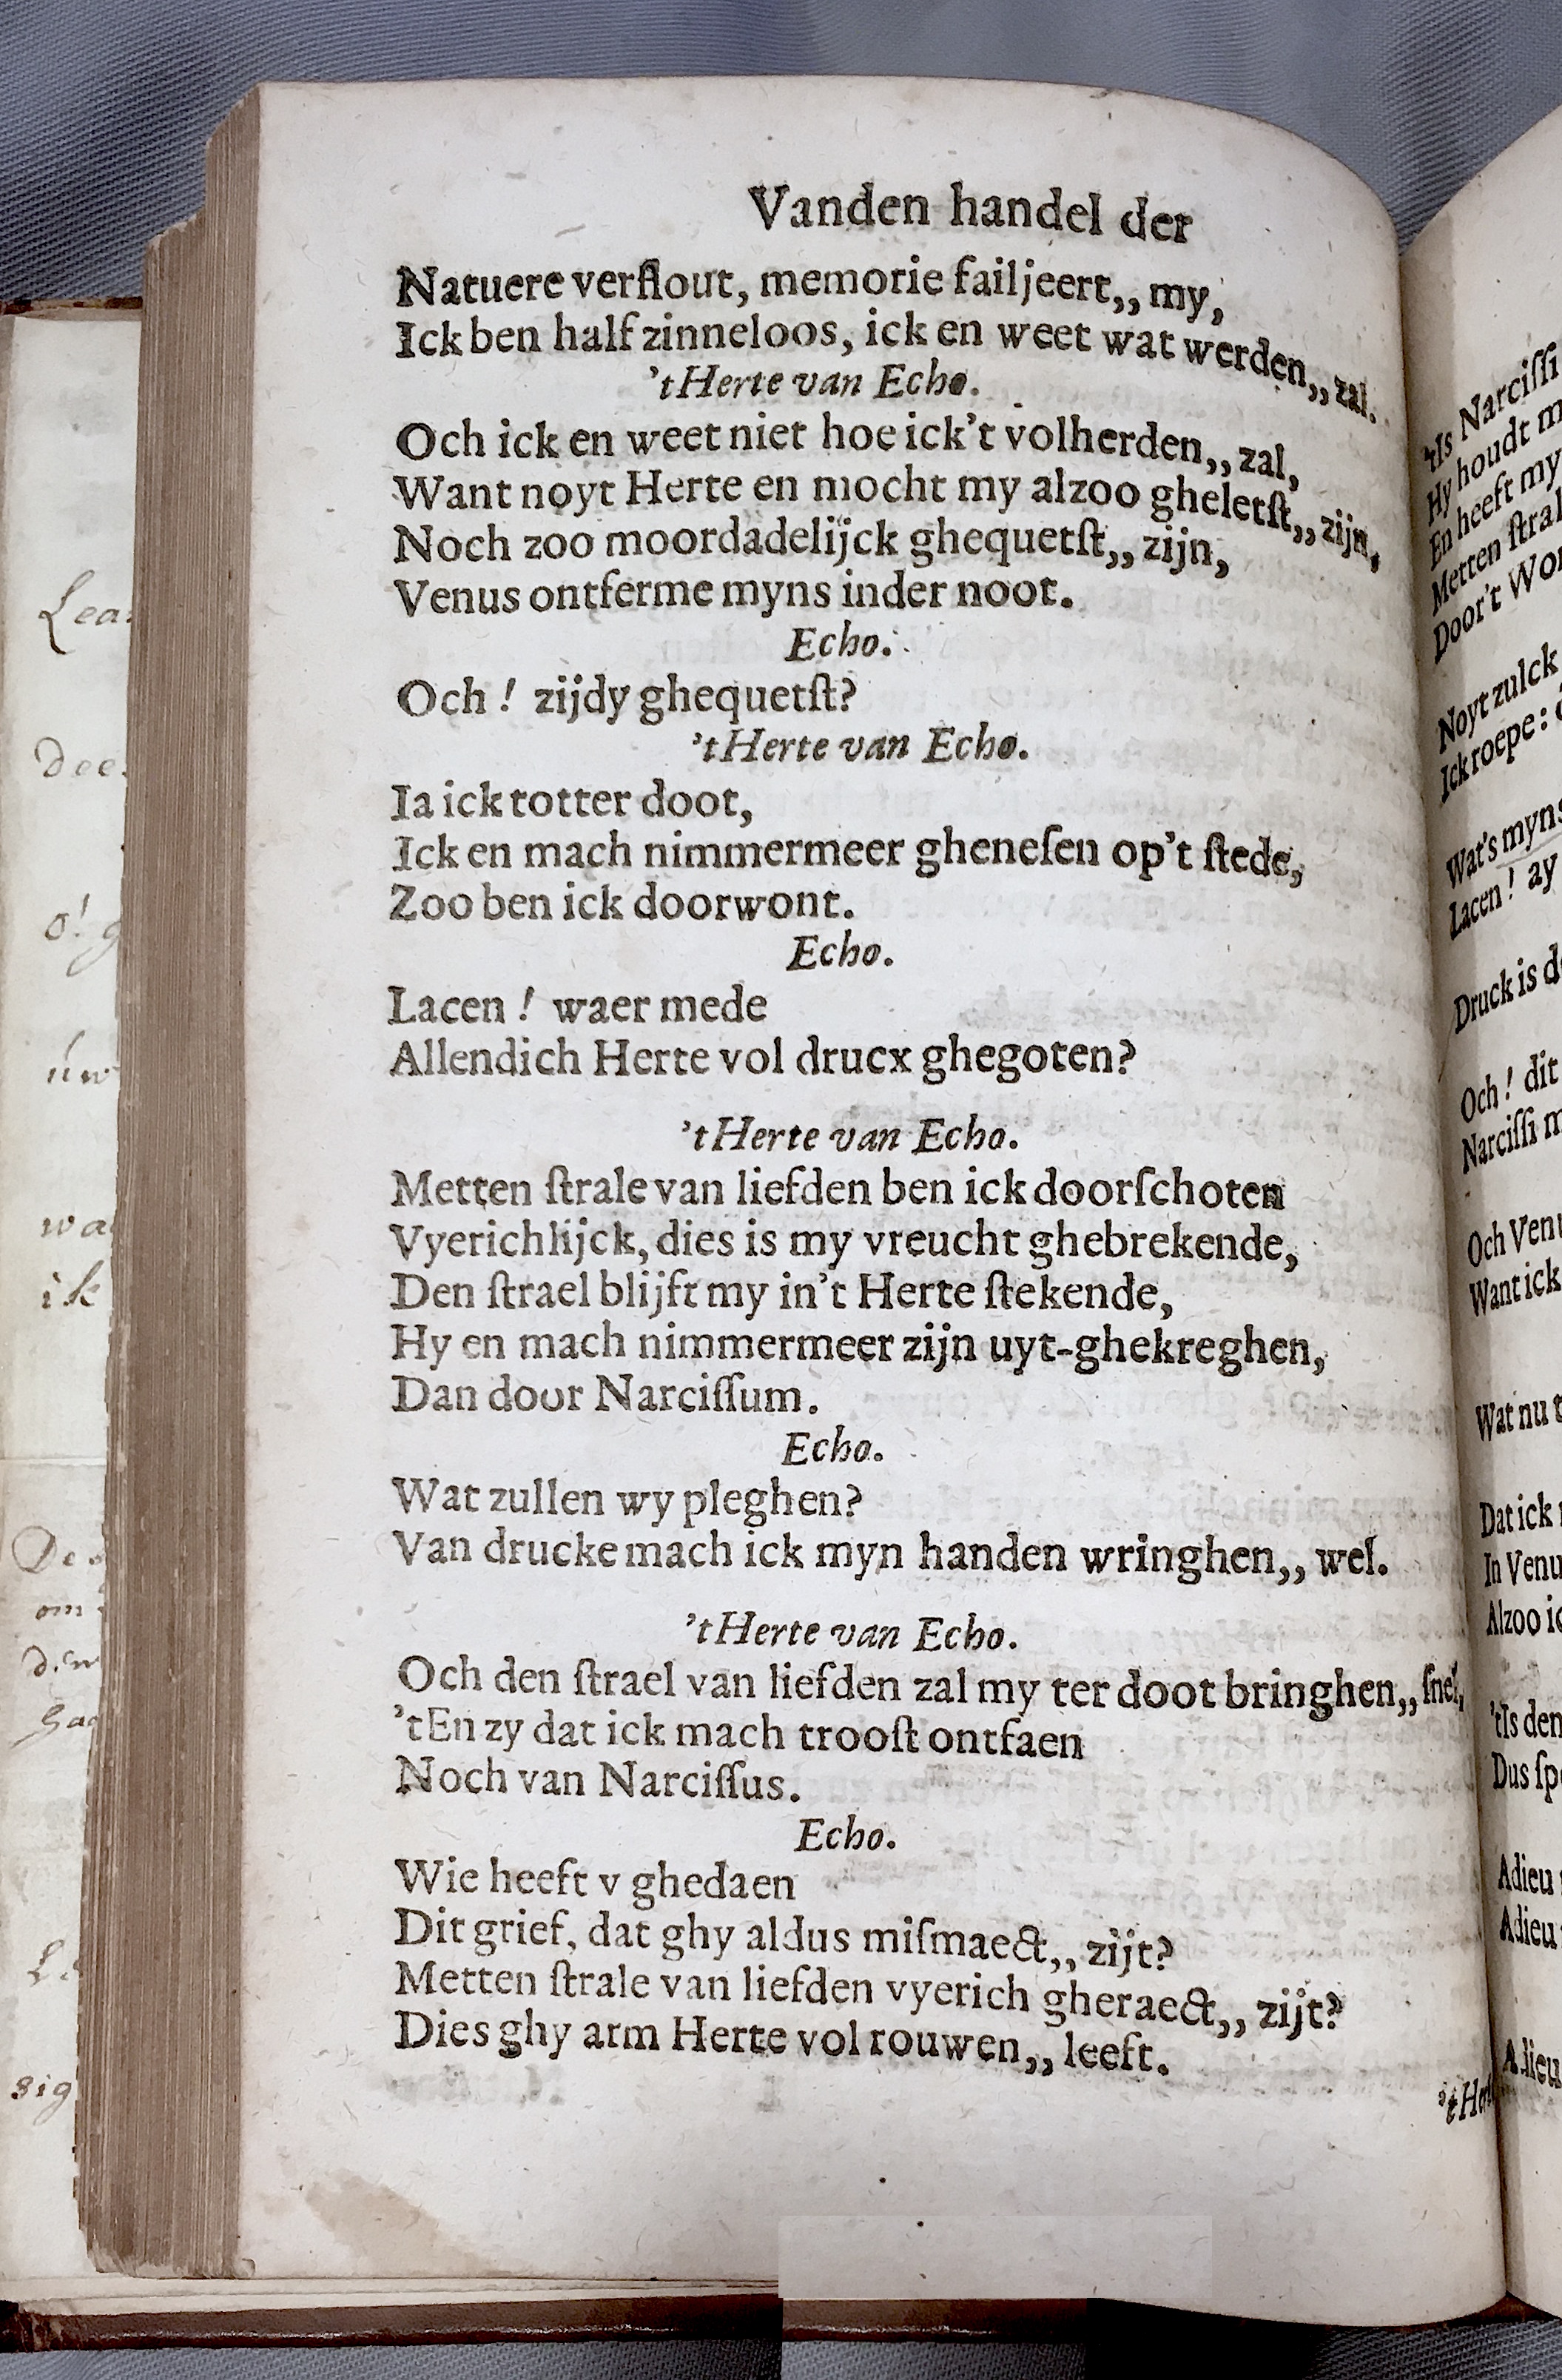 Vanden handel der
Natuere verflout, memorie failjeert,, my,
Ick ben half zinneloos, ick en weet wat werden,, zal.
'tHerte van Echo.
Och ick en weet niet hoe ick't volherden,, zal,
Want noyt Herte en mocht my alzoo gheletſt,, zijn,
Noch zoo moordadelijck ghequetſt,, zijn,
Venus ontferme myns inder noot.
Echo.
Och ! zijdy ghequetſt?
'tHerte van Echo.
Ia ick totter doot,
Ick en mach nimmermeer gheneſen op't ſtede,
Zoo ben ick doorwont.
Echo.
Lacen ! waer mede
Allendich Herte vol drucx ghegoten?
'tHerte van Echo.
Metten ſtrale van liefden ben ick doorſchoten
Vyerichlijck, dies is my vreucht ghebrekende,
Den ſtrael blijft my in't Herte ſtekende,
Hy en mach nimmermeer zijn uyt-ghekreghen,
Dan door Narciſſum.
Echo.
Wat zullen wy pleghen?
Van drucke mach ick myn handen wringhen,, wel.
'tHerte van Echo.
Och den ſtrael van liefden zal my ter doot bringhen,, ſnel,
'tEn zy dat ick mach trooſt ontfaen
Noch van Narciſſus.
Echo.
Wie heeft v ghedaen
Dit grief, dat ghy aldus miſmaect,, zijt?
Metten ſtrale van liefden vyerich gheraect,, zijt?
Dies ghy arm Herte vol rouwen,, leeft.
'tHert
'tIs Narciſſi
Hy houdt
En heeft my
Metten
Door't
Noyt zulck
Ick roepe:
Wat's myns
Lacen ! ay
Druck is
Och ! dit
Narciſſi
Och
Want ick
Wat nu
Dat ick
In
Alzoo
'tIs den
Dus
Adieu
Adieu
Adieu